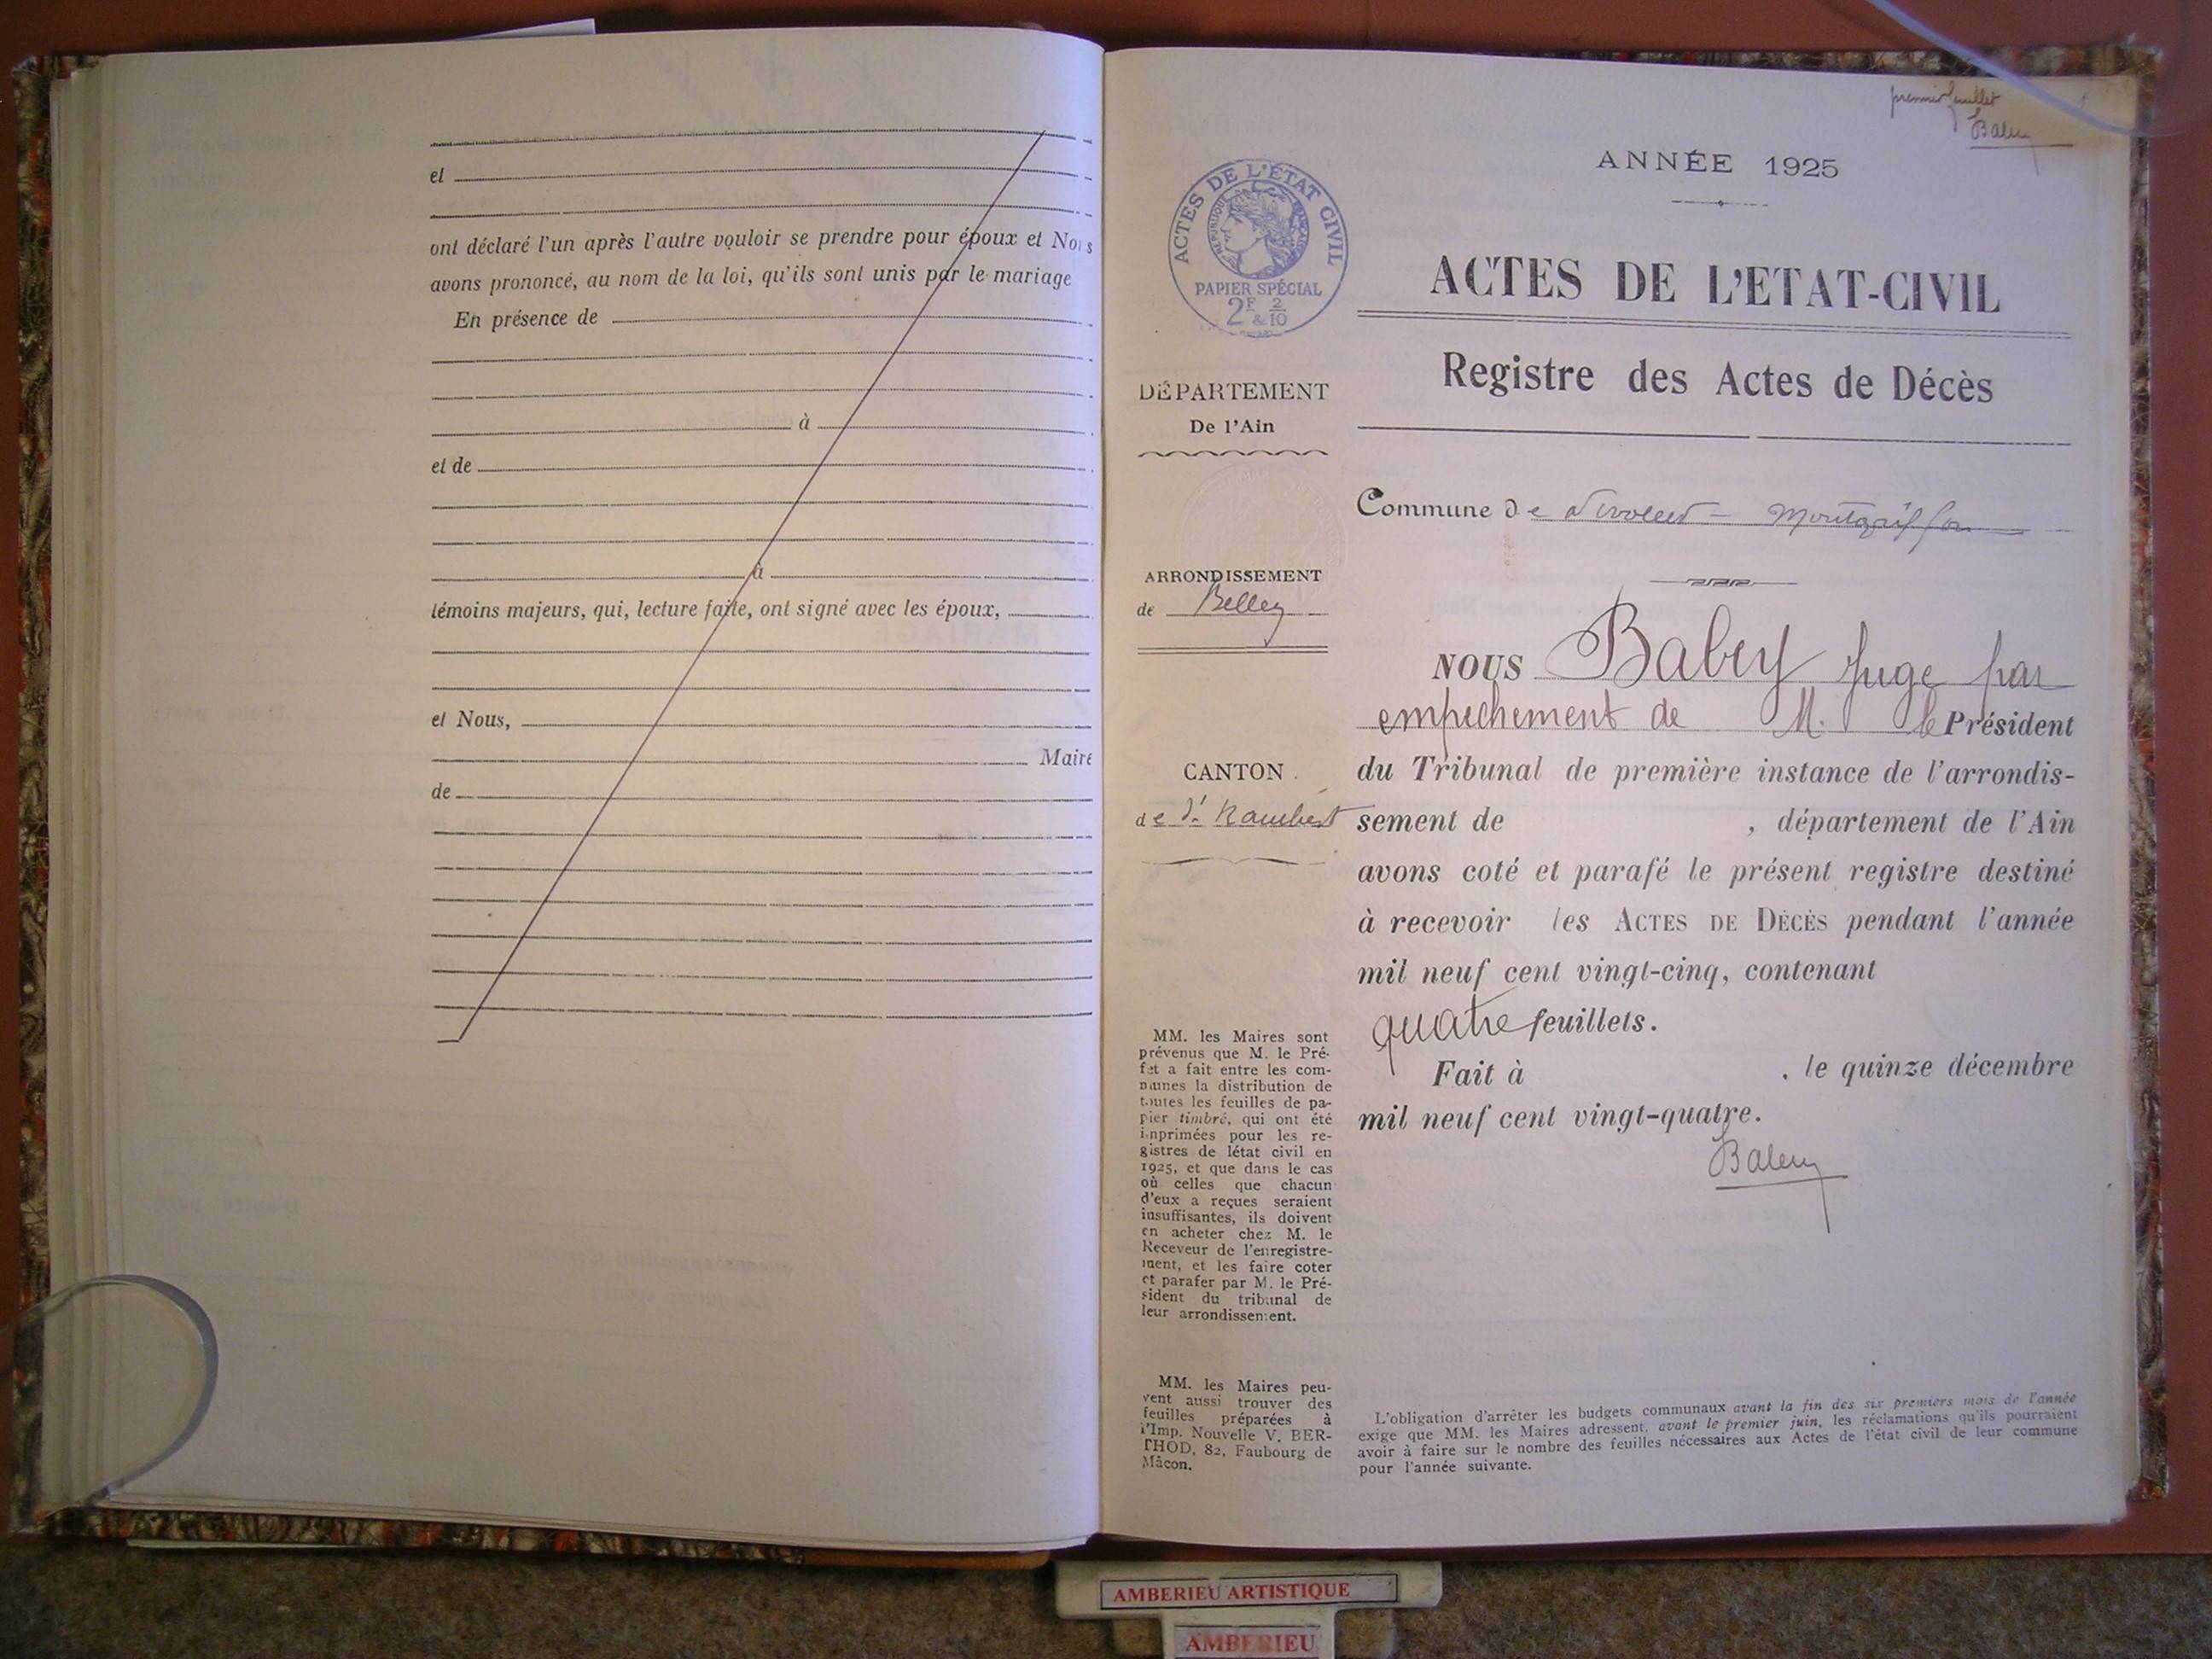 et
ont déclaré l'un après l'autre vouloir se prendre pour époux et Nous
avons prononcé, au nom de la loi, qu'ils sont unis par le mariage
En présence de
à
et de
à
témoins majeurs, qui, lecture faite, ont signé avec les époux,
et Nous,
Maire
de
premier feuillet
Babey
ANNÉE 1925
ACTES DE L'ÉTAT CIVIL
RÉPUBLIQUE FRANÇAISE
PAPIER SPÉCIAL
2F & 2/10
ACTES DE L'ETAT-CIVIL
Registre des Actes de Décès
DÉPARTEMENT
De l'Ain
Commune de Nivollet-Montgriffon
ARRONDISSEMENT
de Belley
CANTON
de St Rambert
NOUS Babey Juge par
empêchement de M. le Président
du Tribunal de première instance de l'arrondis-
sement de , département de l'Ain
avons coté et parafé le présent registre destiné
à recevoir les ACTES DE DÉCÈS pendant l'année
mil neuf cent vingt-cinq, contenant
quatre feuillets.
Fait à , le quinze décembre
mil neuf cent vingt-quatre.
Babey
MM. les Maires sont
prévenus que M. le Pré-
fet a fait entre les com-
munes la distribution de
toutes les feuilles de pa-
pier timbré, qui ont été
imprimées pour les re-
gistres de létat civil en
1925, et que dans le cas
où celles que chacun
d'eux a reçues seraient
insuffisantes, ils doivent
en acheter chez M. le
Receveur de l'enregistre-
ment, et les faire coter
et parafer par M. le Pré-
sident du tribunal de
leur arrondissement.
MM. les Maires peu-
vent aussi trouver des
feuilles préparées à
l'Imp. Nouvelle V. BER-
THOD, 82, Faubourg de
Mâcon.
L'obligation d'arrêter les budgets communaux avant la fin des six premiers mois de l'année
exige que MM. les Maires adressent, avant le premier juin, les réclamations qu'ils pourraient
avoir à faire sur le nombre des feuilles nécessaires aux Actes de l'état civil de leur commune
pour l'année suivante.
AMBERIEU ARTISTIQUE
AMBERIEU